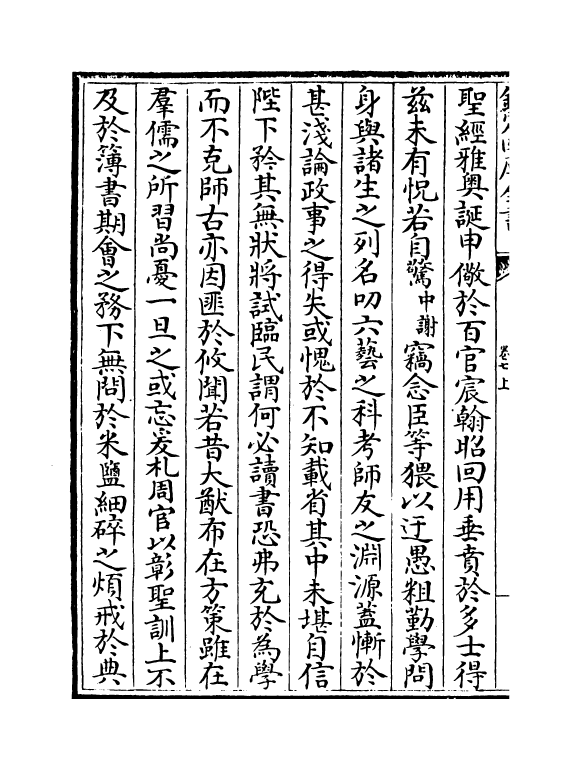 聖經雅奥誕申儆於百官宸翰昭回用垂賁於多士得
兹未有怳若自驚中謝竊念臣等猥以迂愚粗勤學問
身與諸生之列名叨六藝之科考師友之淵源蓋慚於
甚淺論政事之得失或愧於不知載省其中未堪自信
陛下矜其無狀將試臨民謂何必讀書恐弗克於為學
而不克師古亦因匪於攸聞若昔大猷布在方策雖在
羣儒之所習尚憂一旦之或忘爰札周官以彰聖訓上不
及於簿書期會之務下無問於米鹽細碎之煩戒於典